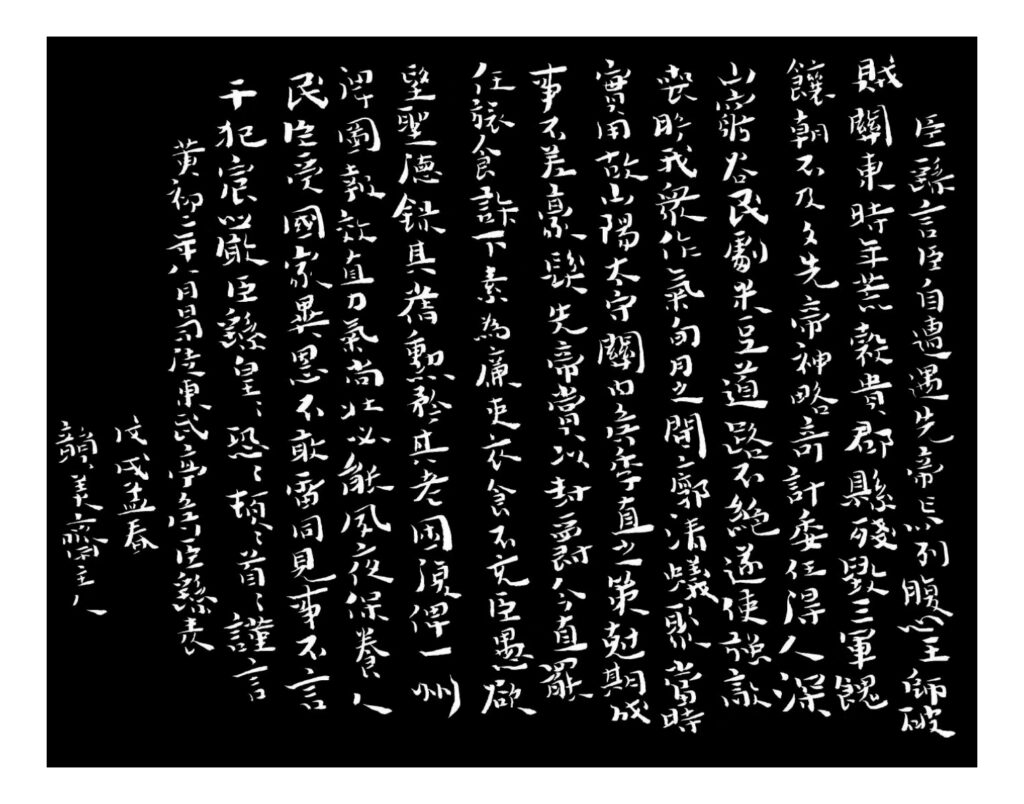 臣繇言臣自遭遇先帝忝列腹心王師破
賊關東時年荒穀貴郡縣殘毀三軍餽
饟朝不及夕先帝神略奇計委任得人深
山窮谷民獻米豆道路不絕遂使強敵
喪膽我眾作氣旬月之間廓清蟻聚當時
實用故山陽太守關內侯季直之策尅期成
事不差豪髮先帝賞以封爵今直罷
任旅食許下素為廉吏衣食不充臣愚欲
望聖德錄其舊勳矜其老困復俾一州
俾圖報效直力氣尚壯必能夙夜保養人
民臣受國家異恩不敢雷同見事不言
干犯宸嚴臣繇皇〻恐〻頓〻首〻謹言
黃初二年八月日司徒東武亭侯臣繇表
戊戌孟春
韻美齋主人